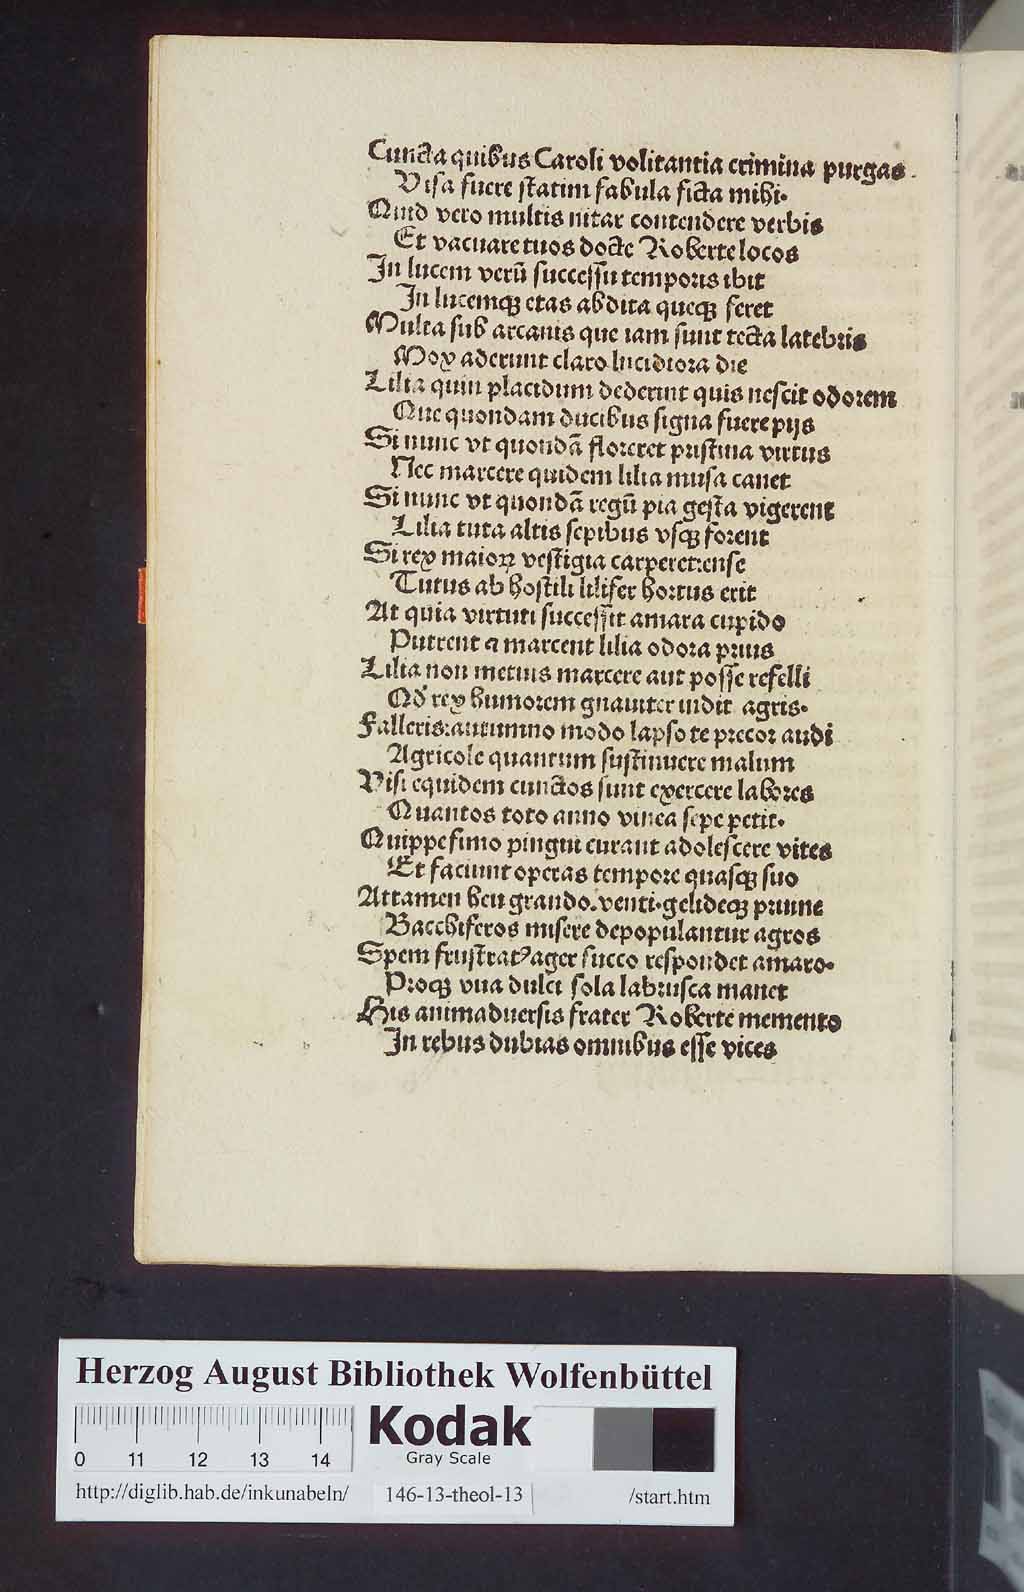 Cuncta quibus Caroli volitantia crimina purgas.
Visa fuere statim fabula ficta mihi.
Quid vero multis nitar contendere verbis
Et vacuare tuos docte Roberte locos
In lucem verū successu temporis ibit
In lucemqꝫ etas abdita queqꝫ feret
Multa sub arcanis que iam sunt tecta latebris
Mox aderunt claro lucidiora die
Lilia quin placidum dederint quis nescit odorem
Que quondam ducibus signa fuere pijs
Si nunc vt quondā floreret pristina virtus
Nec marcere quidem lilia musa canet
Si nunc vt quondā regū pia gesta vigerent
Lilia tuta altis sepibus vsqꝫ forent
Si rex maioꝝ vestigia carperet:ense
Tutus ab hostili lilifer hortus erit
At quia virtuti successit amara cupido
Putrent ⁊ marcent lilia odora prius
Lilia non metuis marcere aut posse refelli
Qd' rex humorem gnauiter indit agris.
Falleris:autumno modo lapso te precor audi
Agricole quantum sustinuere malum
Visi equidem cunctos sunt exercere labores
Quantos toto anno vinea sepe petit.
Quippe fimo pingui curant adolescere vites
Et faciunt operas tempore quasqꝫ suo
Attamen heu grando.venti.gelideqꝫ pruine
Bacchiferos misere depopulantur agros
Spem frustratꝰ ager succo respondet amaro.
Proqꝫ vua dulci sola labrusca manet
His animaduersis frater Roberte memento
In rebus dubias omnibus esse vices
Herzog August Bibliothek Wolfenbüttel
0 11 12 13 14
Kodak
Gray Scale
http://diglib.hab.de/inkunabeln/ 146-13-theol-13 /start.htm